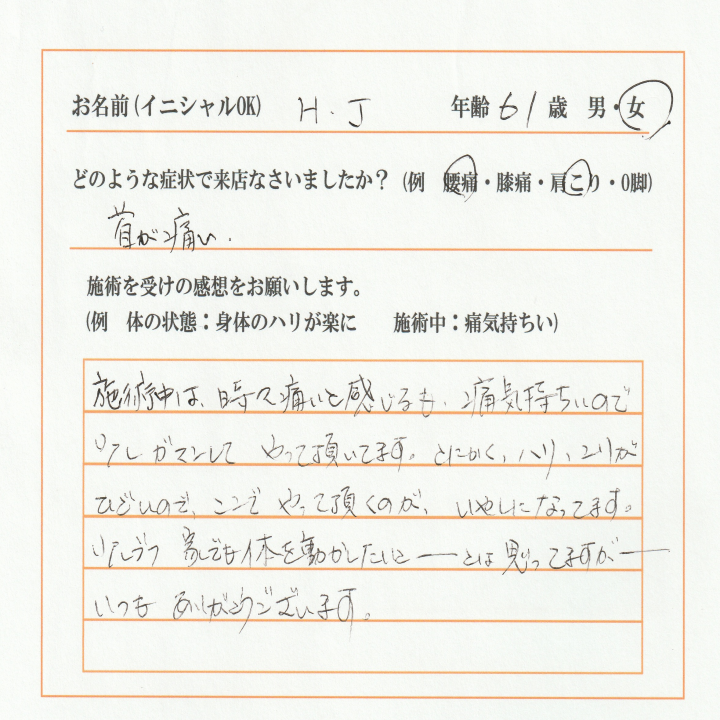 お名前(イニシャルOK) H.J 年齢 61 歳 男・女
どのような症状で来店なさいましたか？ (例 腰痛・膝痛・肩こり・O脚)
首が痛い.
施術を受けの感想をお願いします。
(例 体の状態：身体のハリが楽に 施術中：痛気持ちい)
施術中は、時々痛いと感じるも、痛気持ちいので
少しガマンして やって頂いてます。とにかく、ハリ、コリが
ひどいので、ここで やって頂くのが、いやしになってます。
少しずつ 家でも体を動かしたいと――とは思ってますが――
いつも ありがとうございます。